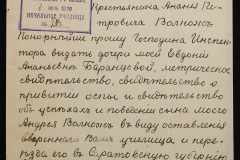 Крестьянина Ананія Пе-
тровича Волкова
Покорнѣйше прошу Господина Инспек-
тора выдать дочери моей Евдокіи
Ананьевнѣ метрическое
свидѣтельство, свидѣтельство о
привитіи оспы и свидѣтельство
объ успѣхахъ и поведеніи сына моего
Андрея Волкова въ виду оставленія
Вамъ училища и пере-
ѣзда его въ Саратовскую губернію